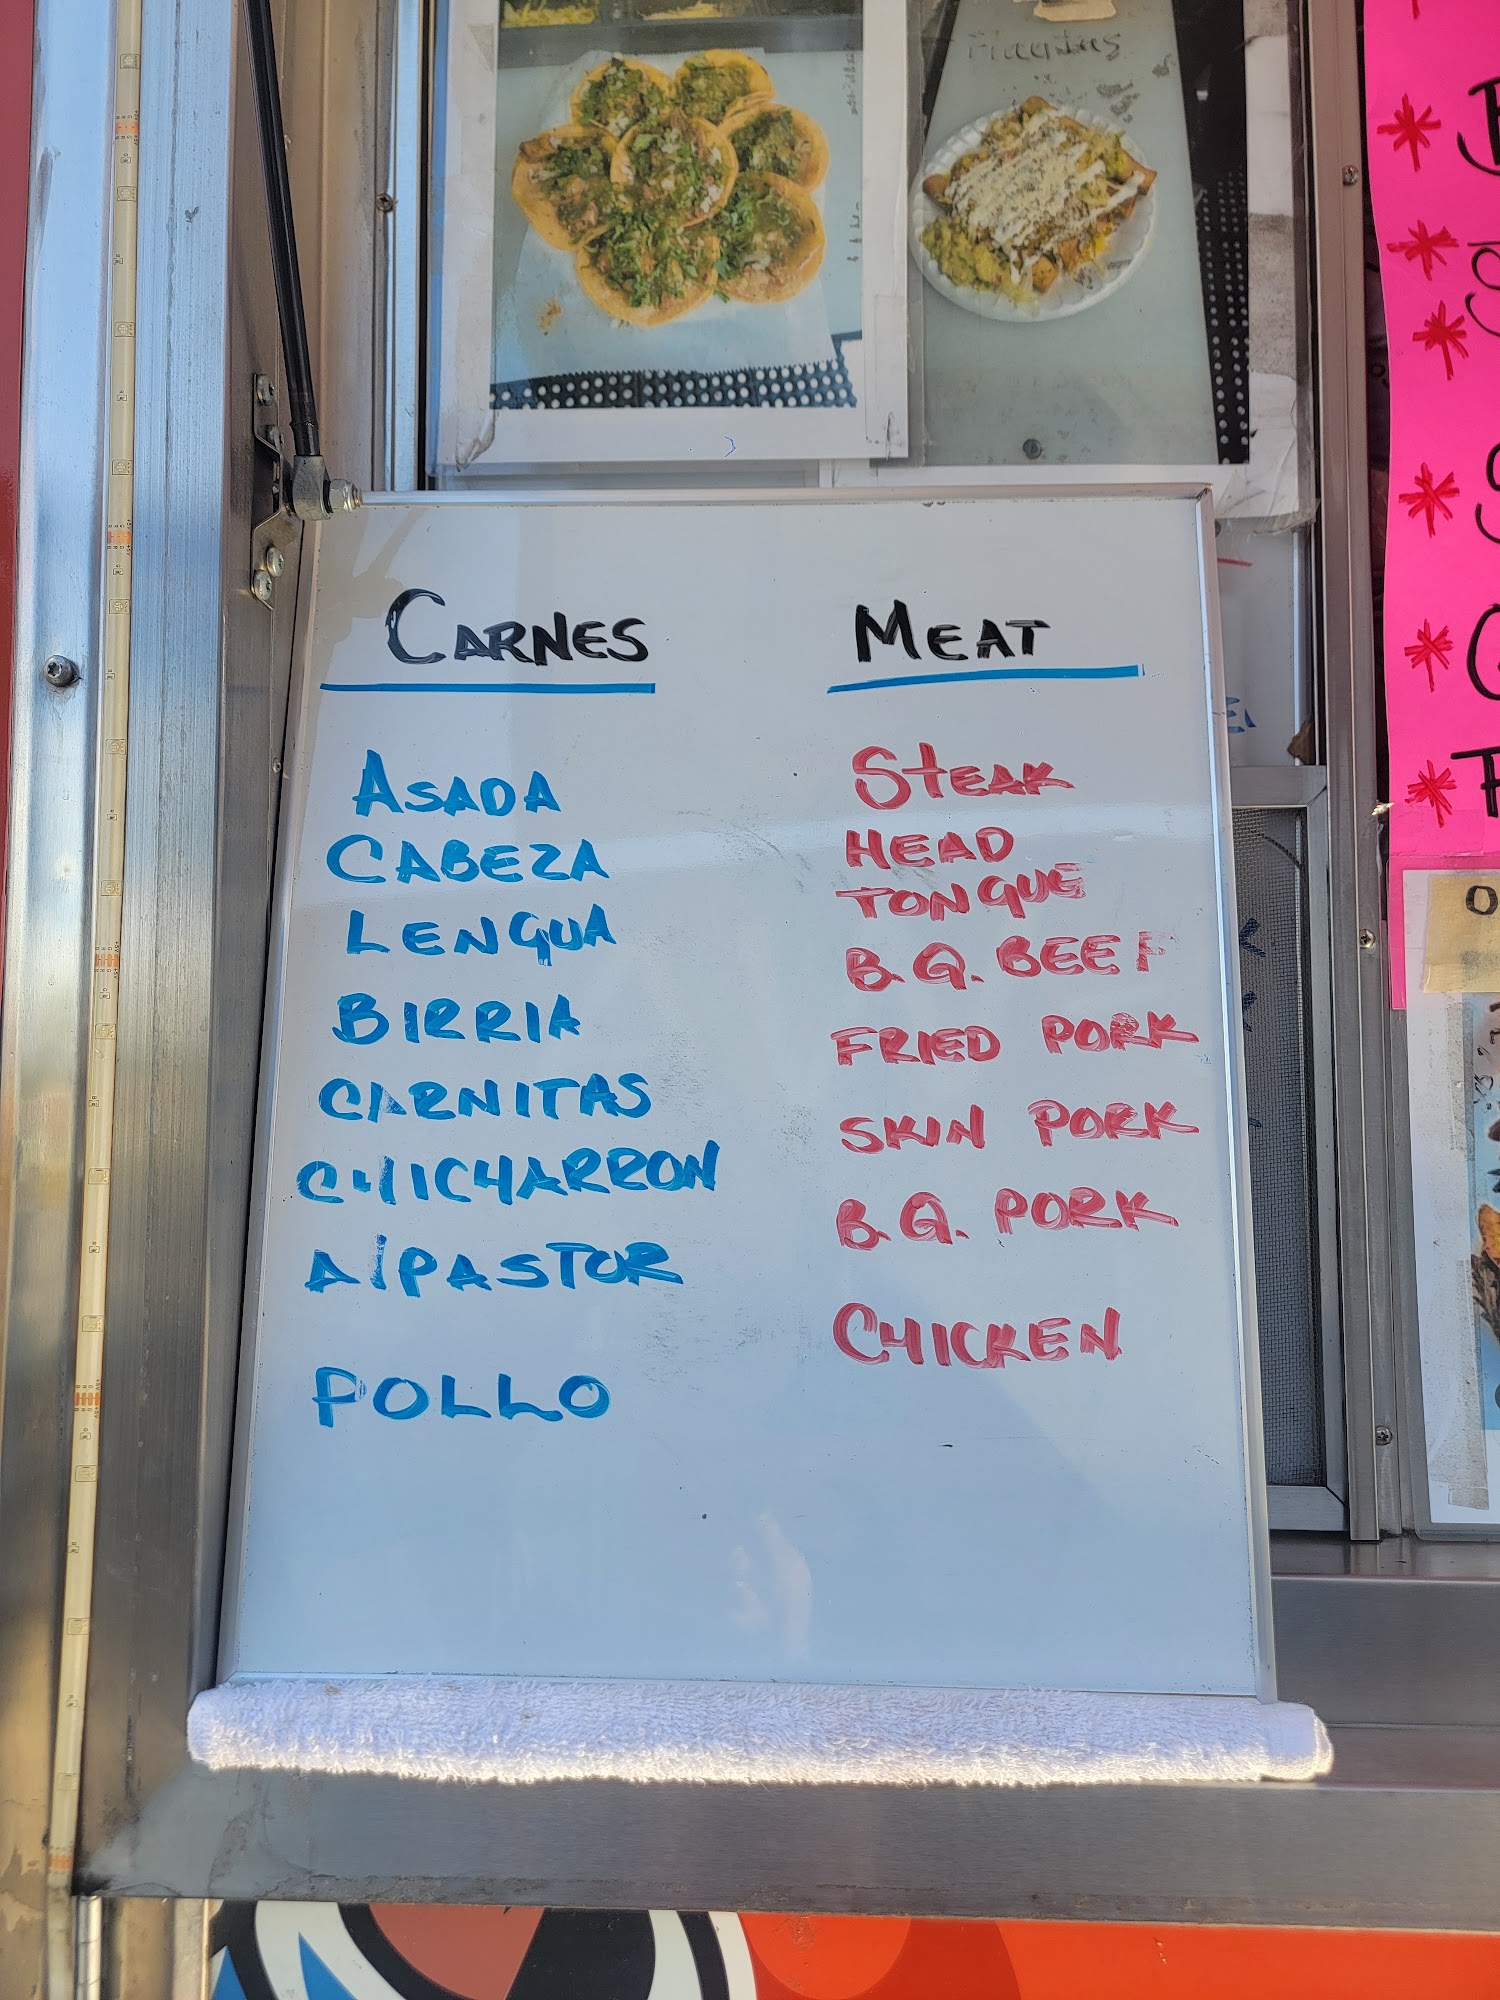 CARNES
MEAT
ASADA
CABEZA
LENGUA
BIRRIA
CARNITAS
CHICHARRON
AlPASTOR
POLLO
STEAK
HEAD
TONGUE
B.Q. BEEF
FRIED PORK
SKIN PORK
B.Q. PORK
CHICKEN